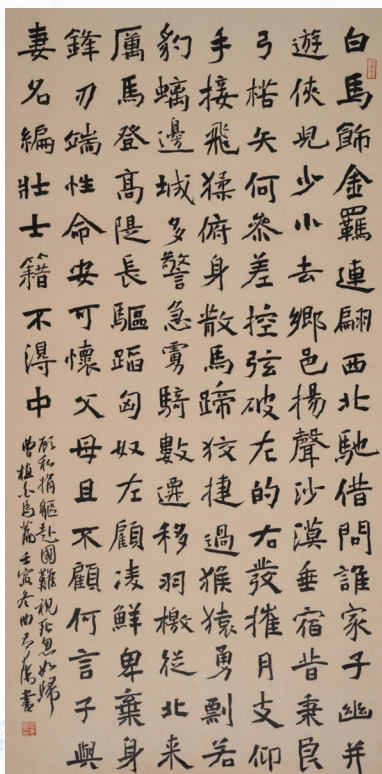 白馬飾金羈連翩西北馳借問誰家子幽并
遊俠兒少小去鄉邑揚聲沙漠垂宿昔秉良
弓楛矢何參差控弦破左的右發摧月支仰
手接飛猱俯身散馬蹄狡捷過猴猿勇剽若
豹螭邊城多警急虜騎數遷移羽檄從北来
厲馬登高隄長驅蹈匈奴左顧凌鮮卑棄身
鋒刃端性命安可懷父母且不顧何言子與
妻名編壯士籍不得中
顧私捐軀赴國難視死忽如歸
曹植白馬篇壬寅冬曲書